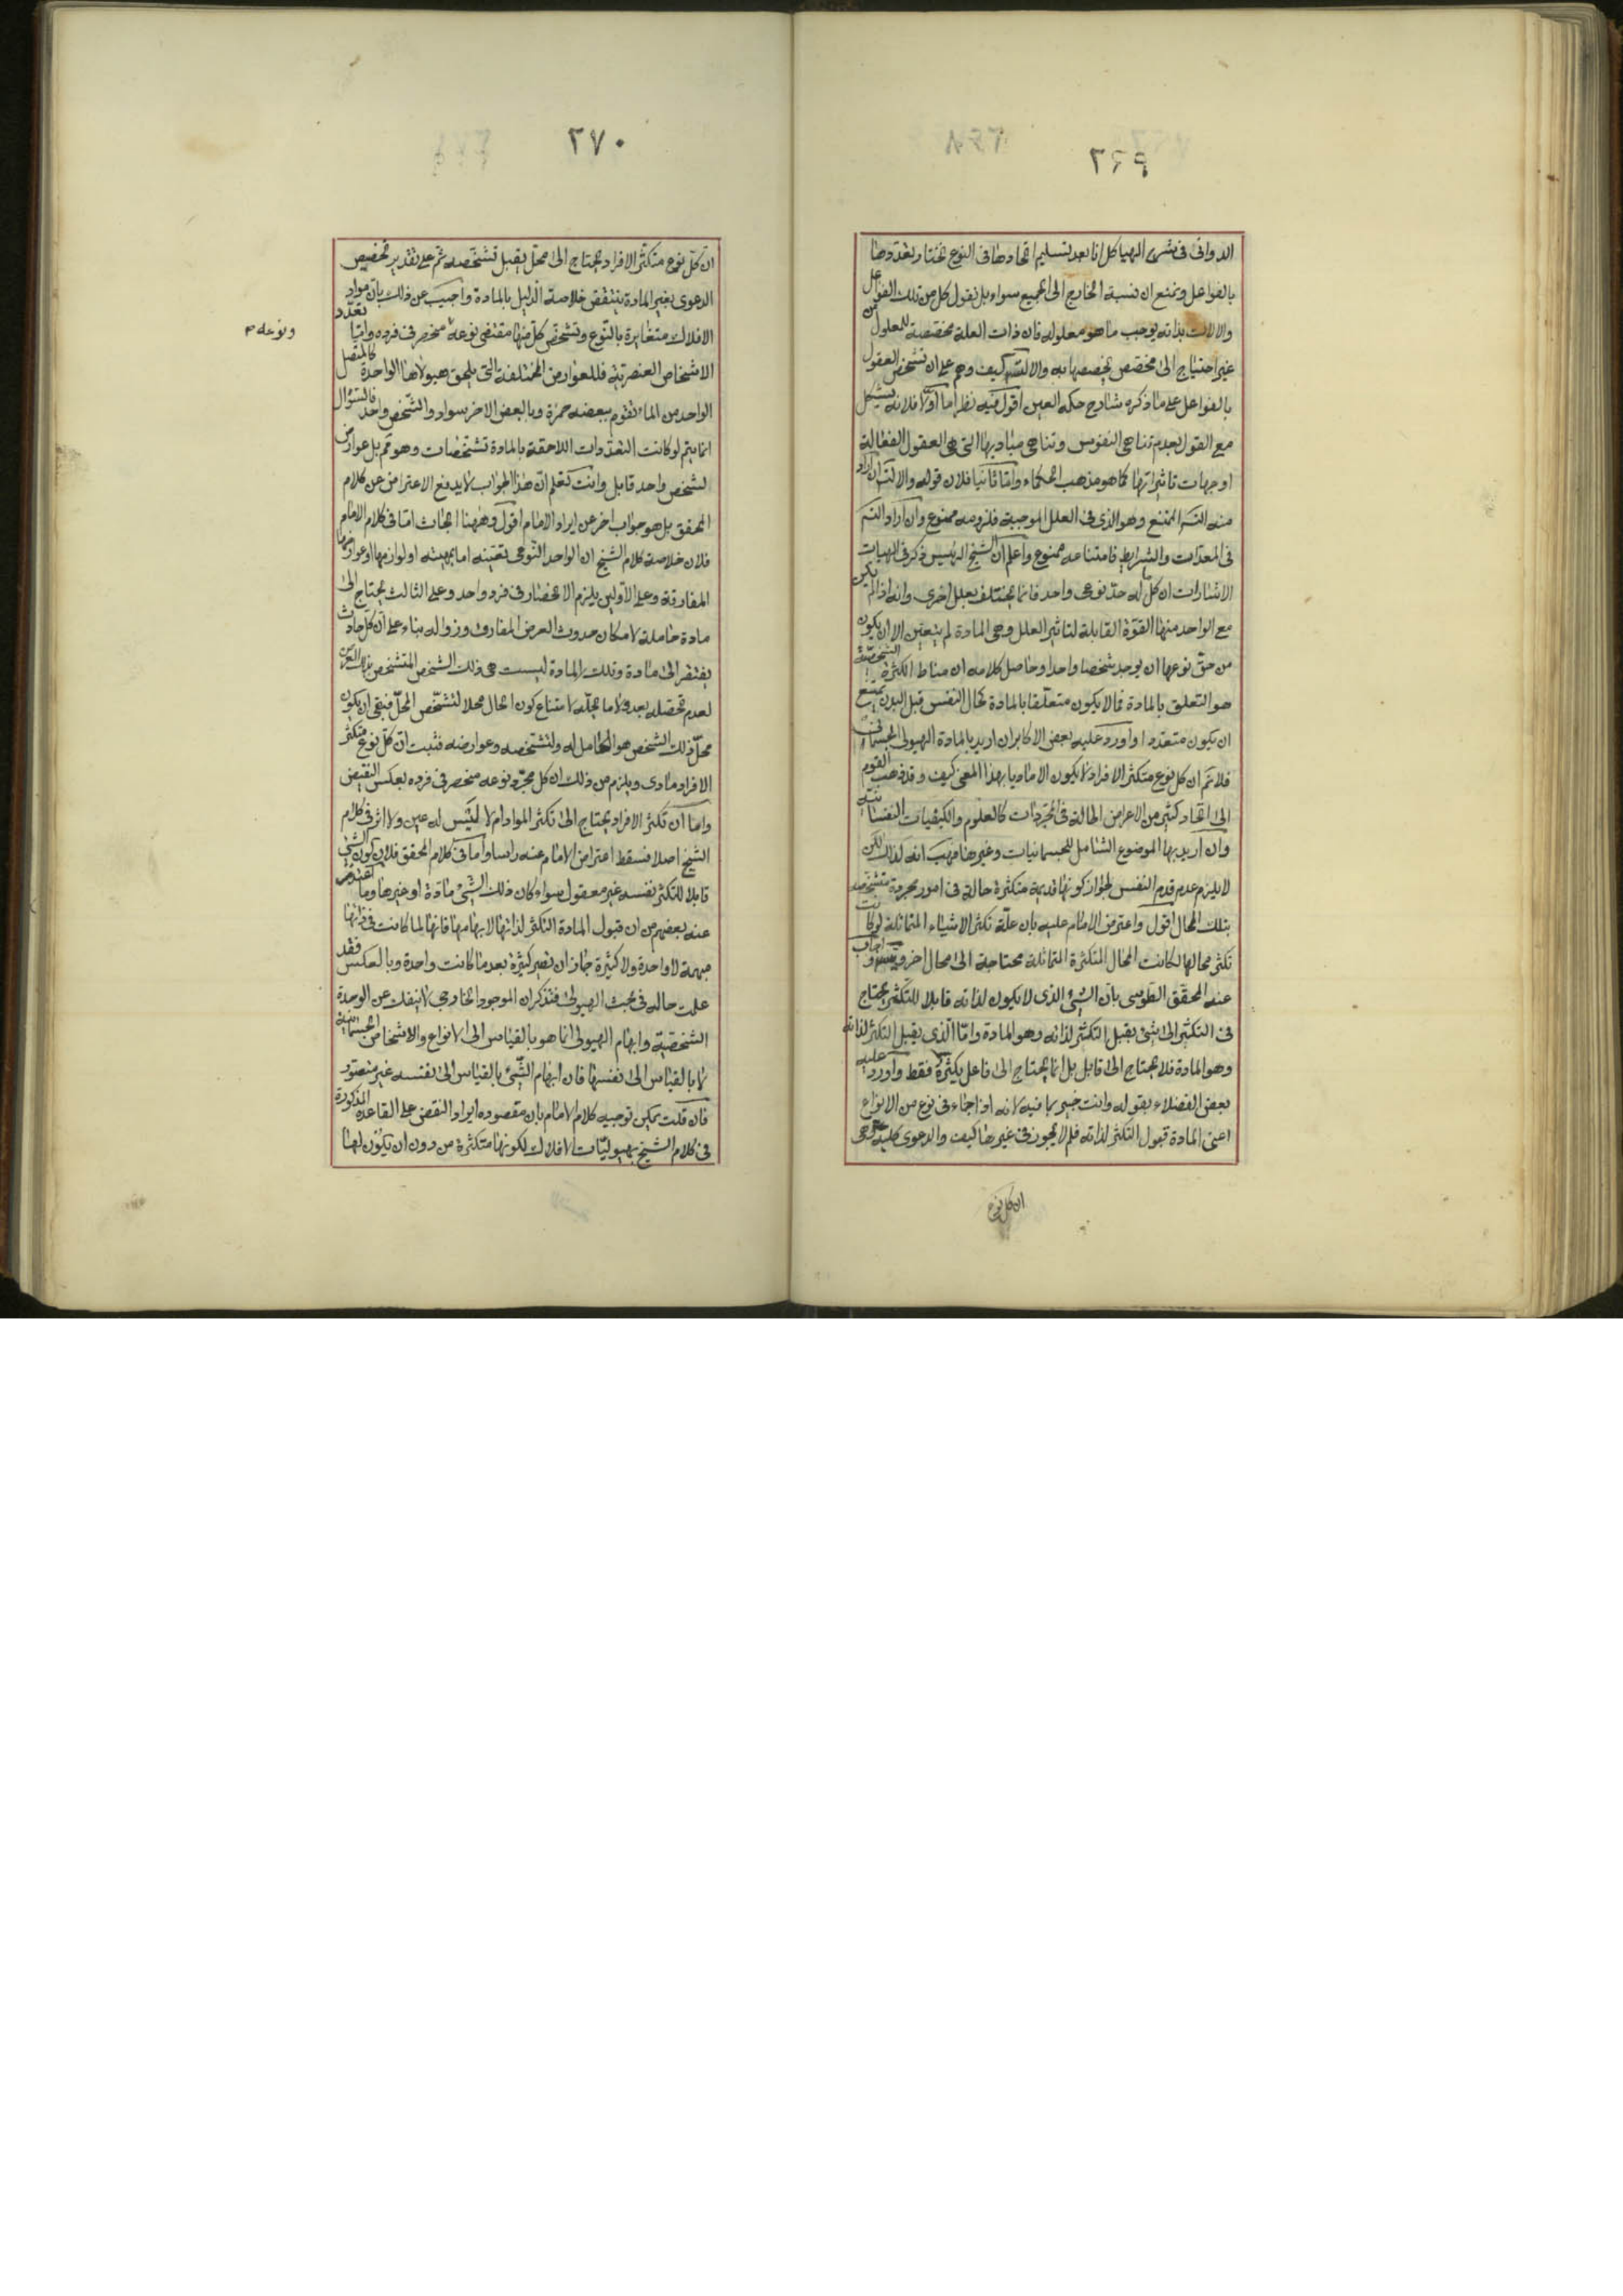 ٢٦٩
الدوانى فى شرح الهياكل انا بعد تسليم اتحادها فى النوع نختار تعددها
بالفواعل ونمنع ان نسبة الخارج الى الجميع سواء بل نقول كل من تلك الفواعل
والالات بذاته يوجب ما هو معلوله فان ذات العلة مخصصة للمعلول من
غير احتياج الى مخصص يخصصها به والا لتسلسل كيف وهم على ان تشخص العقول
بالفواعل على ما ذكره شارح حكمة العين اقول فيه نظر اما اولا فلانه يشكل
مع القول بعدم تناهى النفوس وتناهى مباديها التى هى العقول الفعالة
او جهات تاثيراتها كما هو مذهب الحكماء واما ثانيا فلان قوله والا لتس ان اراد
منه التس الممتنع وهو الذى فى العلل الموجبة فلزومه ممنوع وان اراد التس
فى المعدات والشرايط فامتناعه ممنوع واعلم ان الشيخ الرئيس ذكر فى الهيات
الاشارات ان كل ما له حد نوعى واحد فانما يختلف بعلل اخرى وانه اذا لم يكن
مع الواحد منها القوة القابلة لتاثير العلل وهى المادة لم يتعين الا ان يكون
من حق نوعها ان يوجد شخصا واحدا وحاصل كلامه ان مناط الكثرة الشخصية
هو التعلق بالمادة فما لا يكون متعلقا بالمادة كحال النفس قبل البدن يمتنع
ان يكون متعددا واورد عليه بعض الاكابر ان اريد بالمادة الهيولى الجسمانية
فلا نم ان كل نوع متكثر الافراد لا يكون الا ماديا بهذا المعنى كيف وقد ذهب القوم
الى اتحاد كثير من الاعراض الحالة فى المجردات كالعلوم والكيفيات النفسانية
وان اريد بها الموضوع الشامل للجسمانيات وغيرها فهب انه كذلك لكن
لا يلزم عدم قدم النفس لجواز كونها قديمة متكثرة حالة فى امور مجردة متشخصة
بتلك المحال اقول واعترض الامام عليه بان علة تكثر الاشياء المتماثلة لو كانت
تكثر محالها لكانت المحال المتكثرة المتماثلة محتاجة الى محال اخر ويتسلسل واجاب
عنه المحقق الطوسى بان الشئ الذى لا يكون لذاته قابلا للتكثر يحتاج
فى التكثر الى شئ يقبل التكثر لذاته وهو المادة واما الذى يقبل التكثر لذاته
وهو المادة فلا يحتاج الى قابل بل انما يحتاج الى فاعل يكثره فقط واورد عليه
بعض الفضلاء بقوله وانت خبير بما فيه لانه اذا جاء فى نوع من الانواع
اعنى المادة قبول التكثر لذاته فلم لا يجوز فى غيرها كيف والدعوى كلية وهى
ان كل نوع
٢٧٠
ان كل نوع متكثر الافراد يحتاج الى محل يقبل تشخصه ثم على تقدير تخصيص
الدعوى بغير المادة ينتقض خلاصة الدليل بالمادة واجيب عن ذلك بان مواد
الافلاك متغايرة بالنوع وتشخص كل منها مقتضى نوعه منحصر فى فرده واما تعدد
ونوعه م
الاشخاص العنصرية فللعوارض المختلفة التى يلحق هيولاها الواحدة كالمتصل
الواحد من الماء تقوم ببعضه حمرة وبالبعض الاخر سواد والشخص واحد فالسؤال
انما يتم لو كانت التعددات اللاحقة بالمادة تشخصات وهو ثم بل عوارض
لشخص واحد قابل وانت تعلم ان هذا الجواب لا يدفع الاعتراض عن كلام
المحقق بل هو جواب اخر عن ايراد الامام اقول وههنا ابحاث اما فى كلام الامام
فلان خلاصة كلام الشيخ ان الواحد النوعى تعينه اما بمهيته او لوازمها او عوارضها
المفارقة وعلى الاولين يلزم الانحصار فى فرد واحد وعلى الثالث يحتاج الى
مادة حاملة لامكان حدوث العرض المفارق وزواله بناء على ان كل حادث
يفتقر الى مادة وتلك المادة ليست هى ذلك الشخص المتشخص بذلك العرض
لعدم تحصله بعد ولا ما يحله لامتناع كون الحال محلا لتشخص المحل فبقى ان يكون
محل ذلك الشخص هو الحامل له ولتشخصه وعوارضه فثبت ان كل نوع متكثر
الافراد مادى ويلزم من ذلك ان كل مجرد نوعه منحصر فى فرده بعكس النقيض
واما ان تكثر الافراد يحتاج الى تكثر المواد ام لا فليس له عين ولا اثر فى كلام
الشيخ اصلا فسقط اعتراض الامام عنه راسا واما فى كلام المحقق فلان كون الشئ
قابلا للتكثر بنفسه غير معقول سواء كان ذلك الشئ مادة او غيرها وما اعتذر
عنه بعضهم من ان قبول المادة التكثر لذاتها لابهامها فانها لما كانت فى ذاتها
مبهمة لا واحدة ولا كثيرة جاز ان تصير كثيرة بعد ما كانت واحدة وبالعكس فقد
علمت حاله فى مبحث الهيولى فتذكر ان الموجود الخارجى لا ينفك عن الوحدة
الشخصية وابهام الهيولى انما هو بالقياس الى الانواع والاشخاص الجسمانية
لا بالقياس الى نفسها فان ابهام الشئ بالقياس الى نفسه غير متصور
فان قلت يمكن توجيه كلام الامام بان مقصوده ايراد النقض على القاعدة المذكورة
فى كلام الشيخ بهيوليات الافلاك لكونها متكثرة من دون ان يكون لها